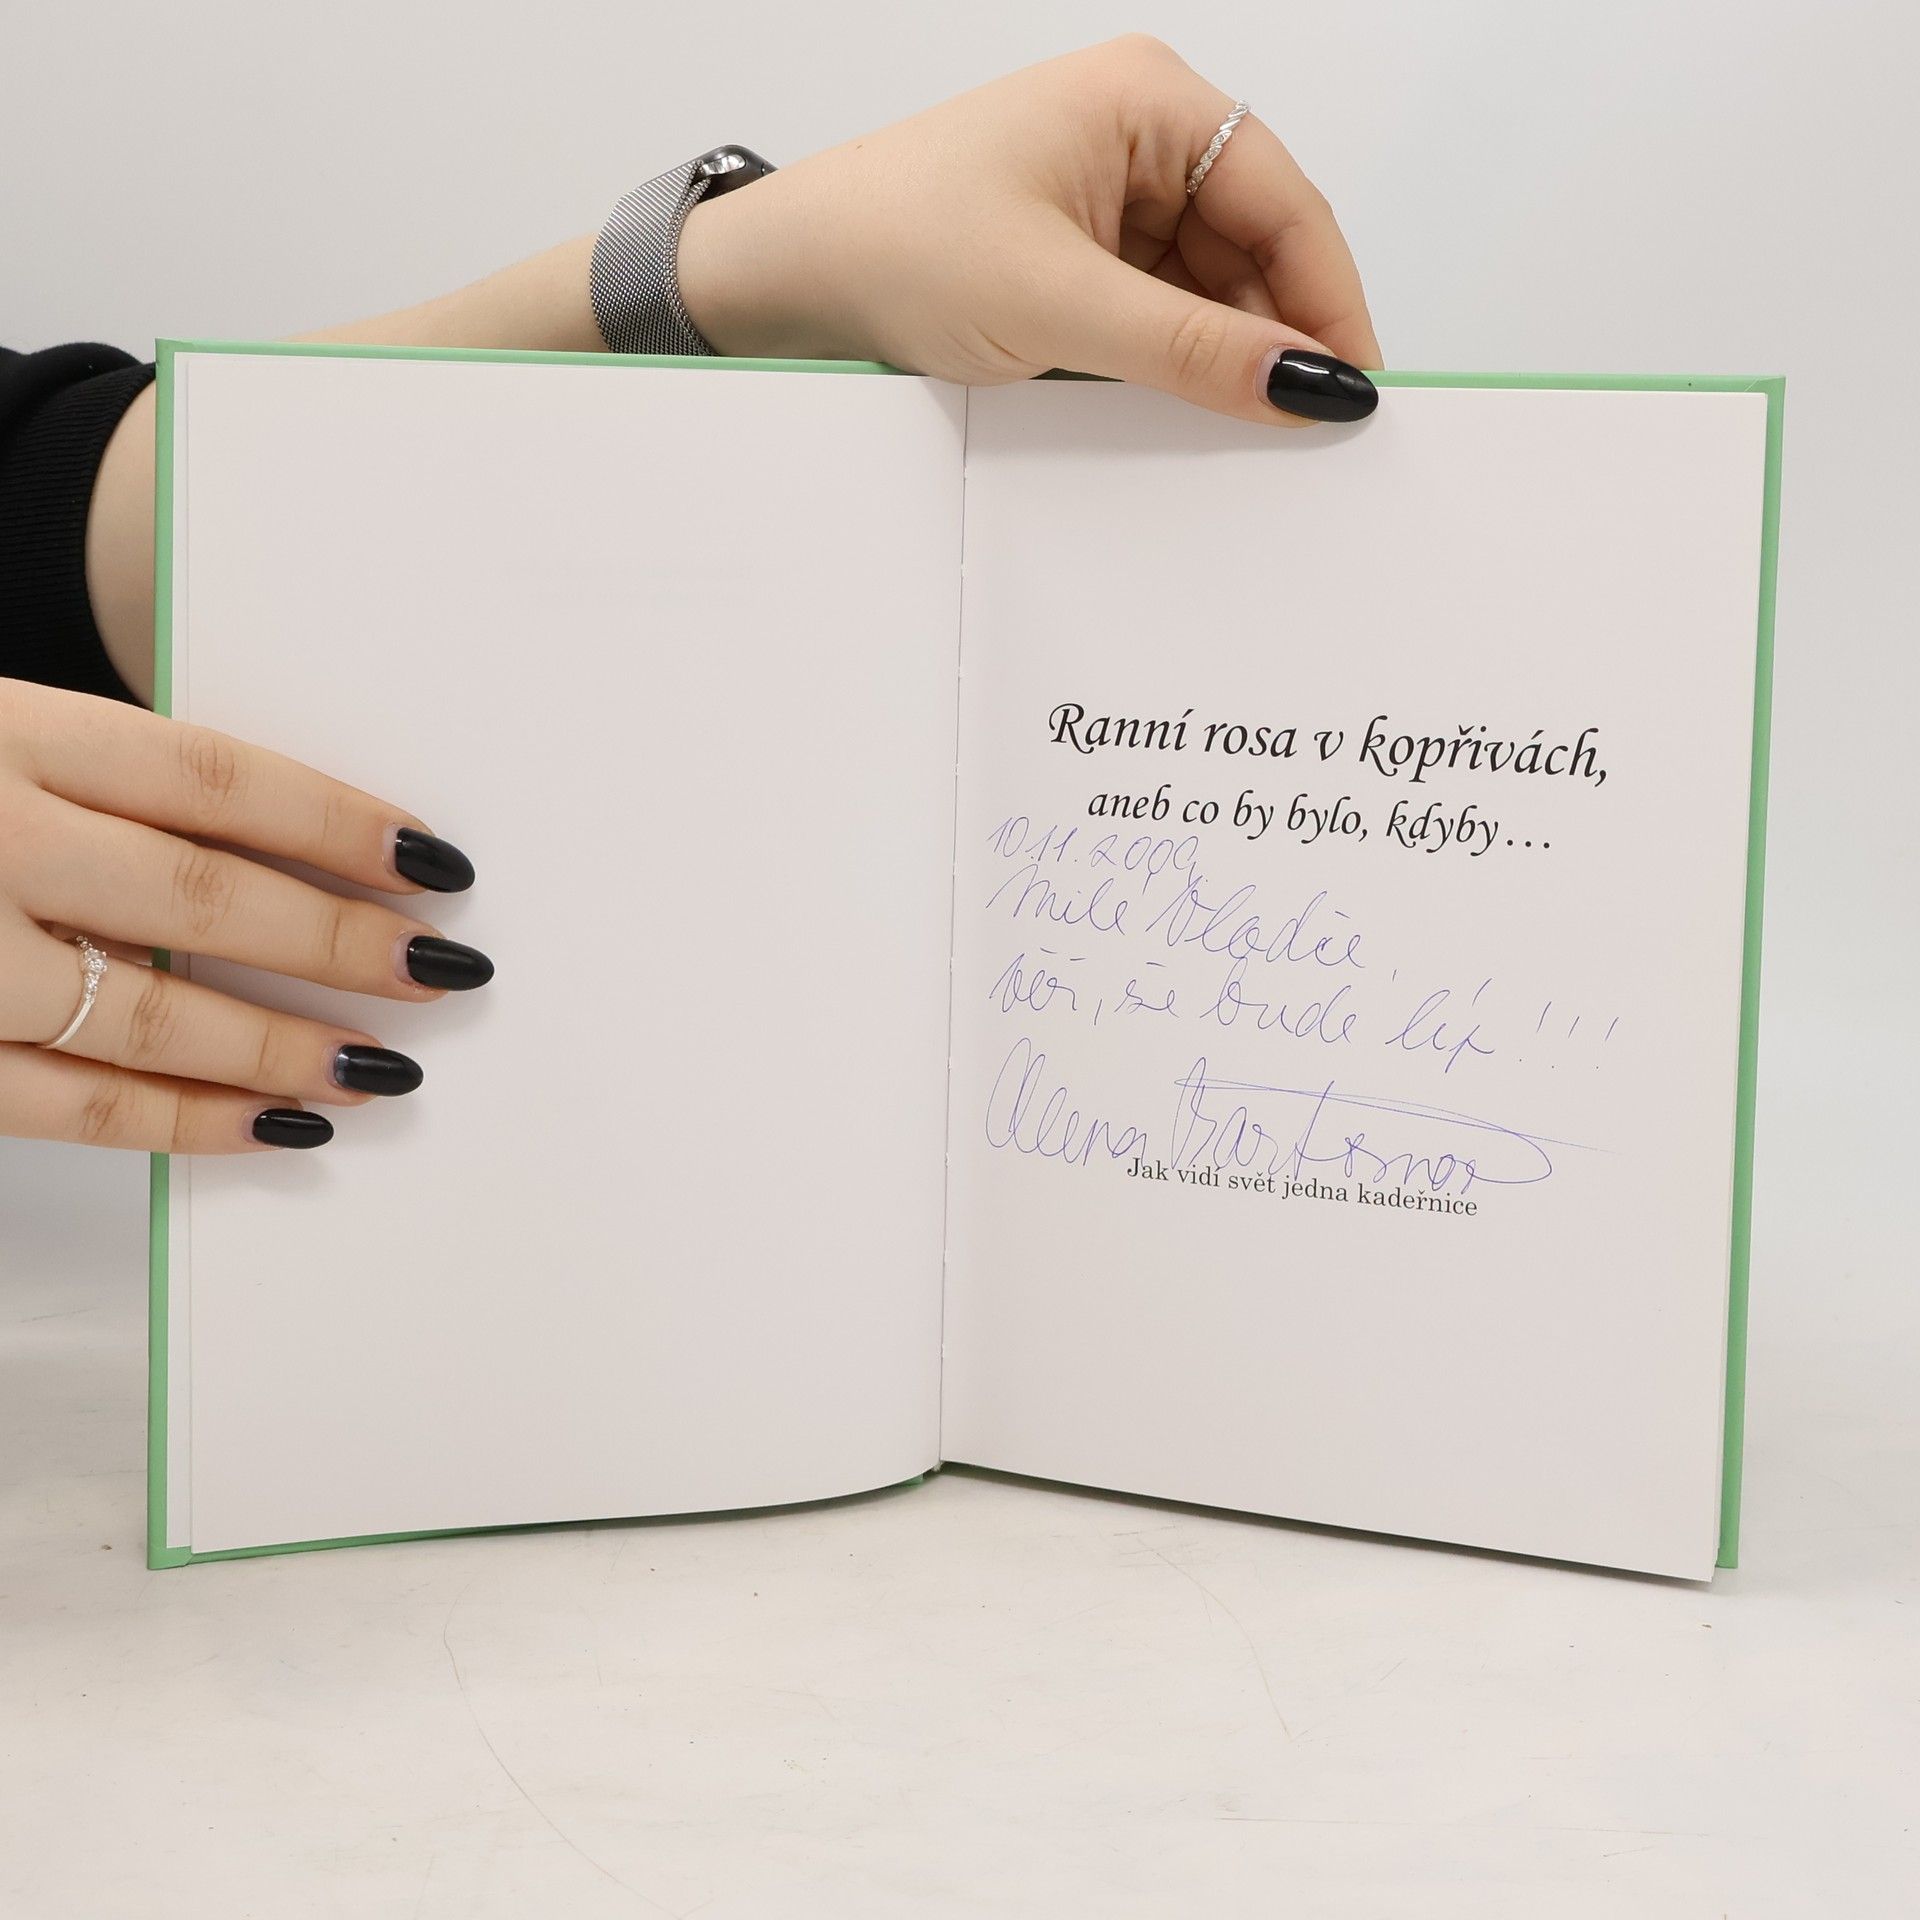 Ranní rosa v kopřivách,
aneb co by bylo, kdyby...
10.11.2009.
Milé Vladče,
věř, že bude líp!!!
Alena
Jak vidí svět jedna kadeřnice